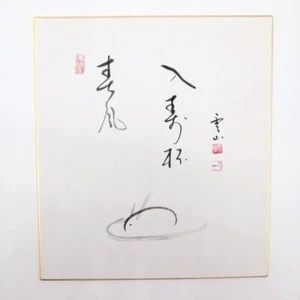 春風
入寿杯
雲山